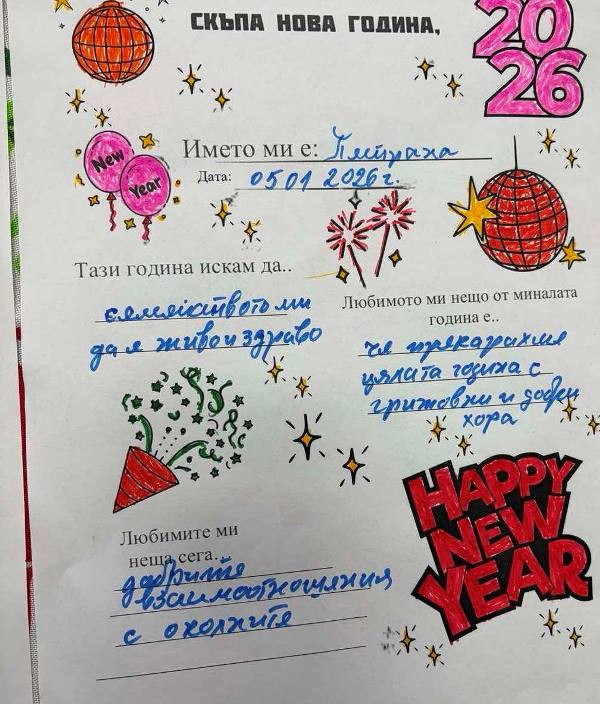 СКЪПА НОВА ГОДИНА,
20
26
New
Year
Името ми е:
Дата: 05 01 2026 г.
Тази година искам да..
семейството ми
да е живо и здраво
Любимото ми нещо от миналата
година е..
че прекарахме
цялата година с
грижовни и добри
хора
Любимите ми
неща сега..
добрите
взаимоотношения
с околните
HAPPY
NEW
YEAR